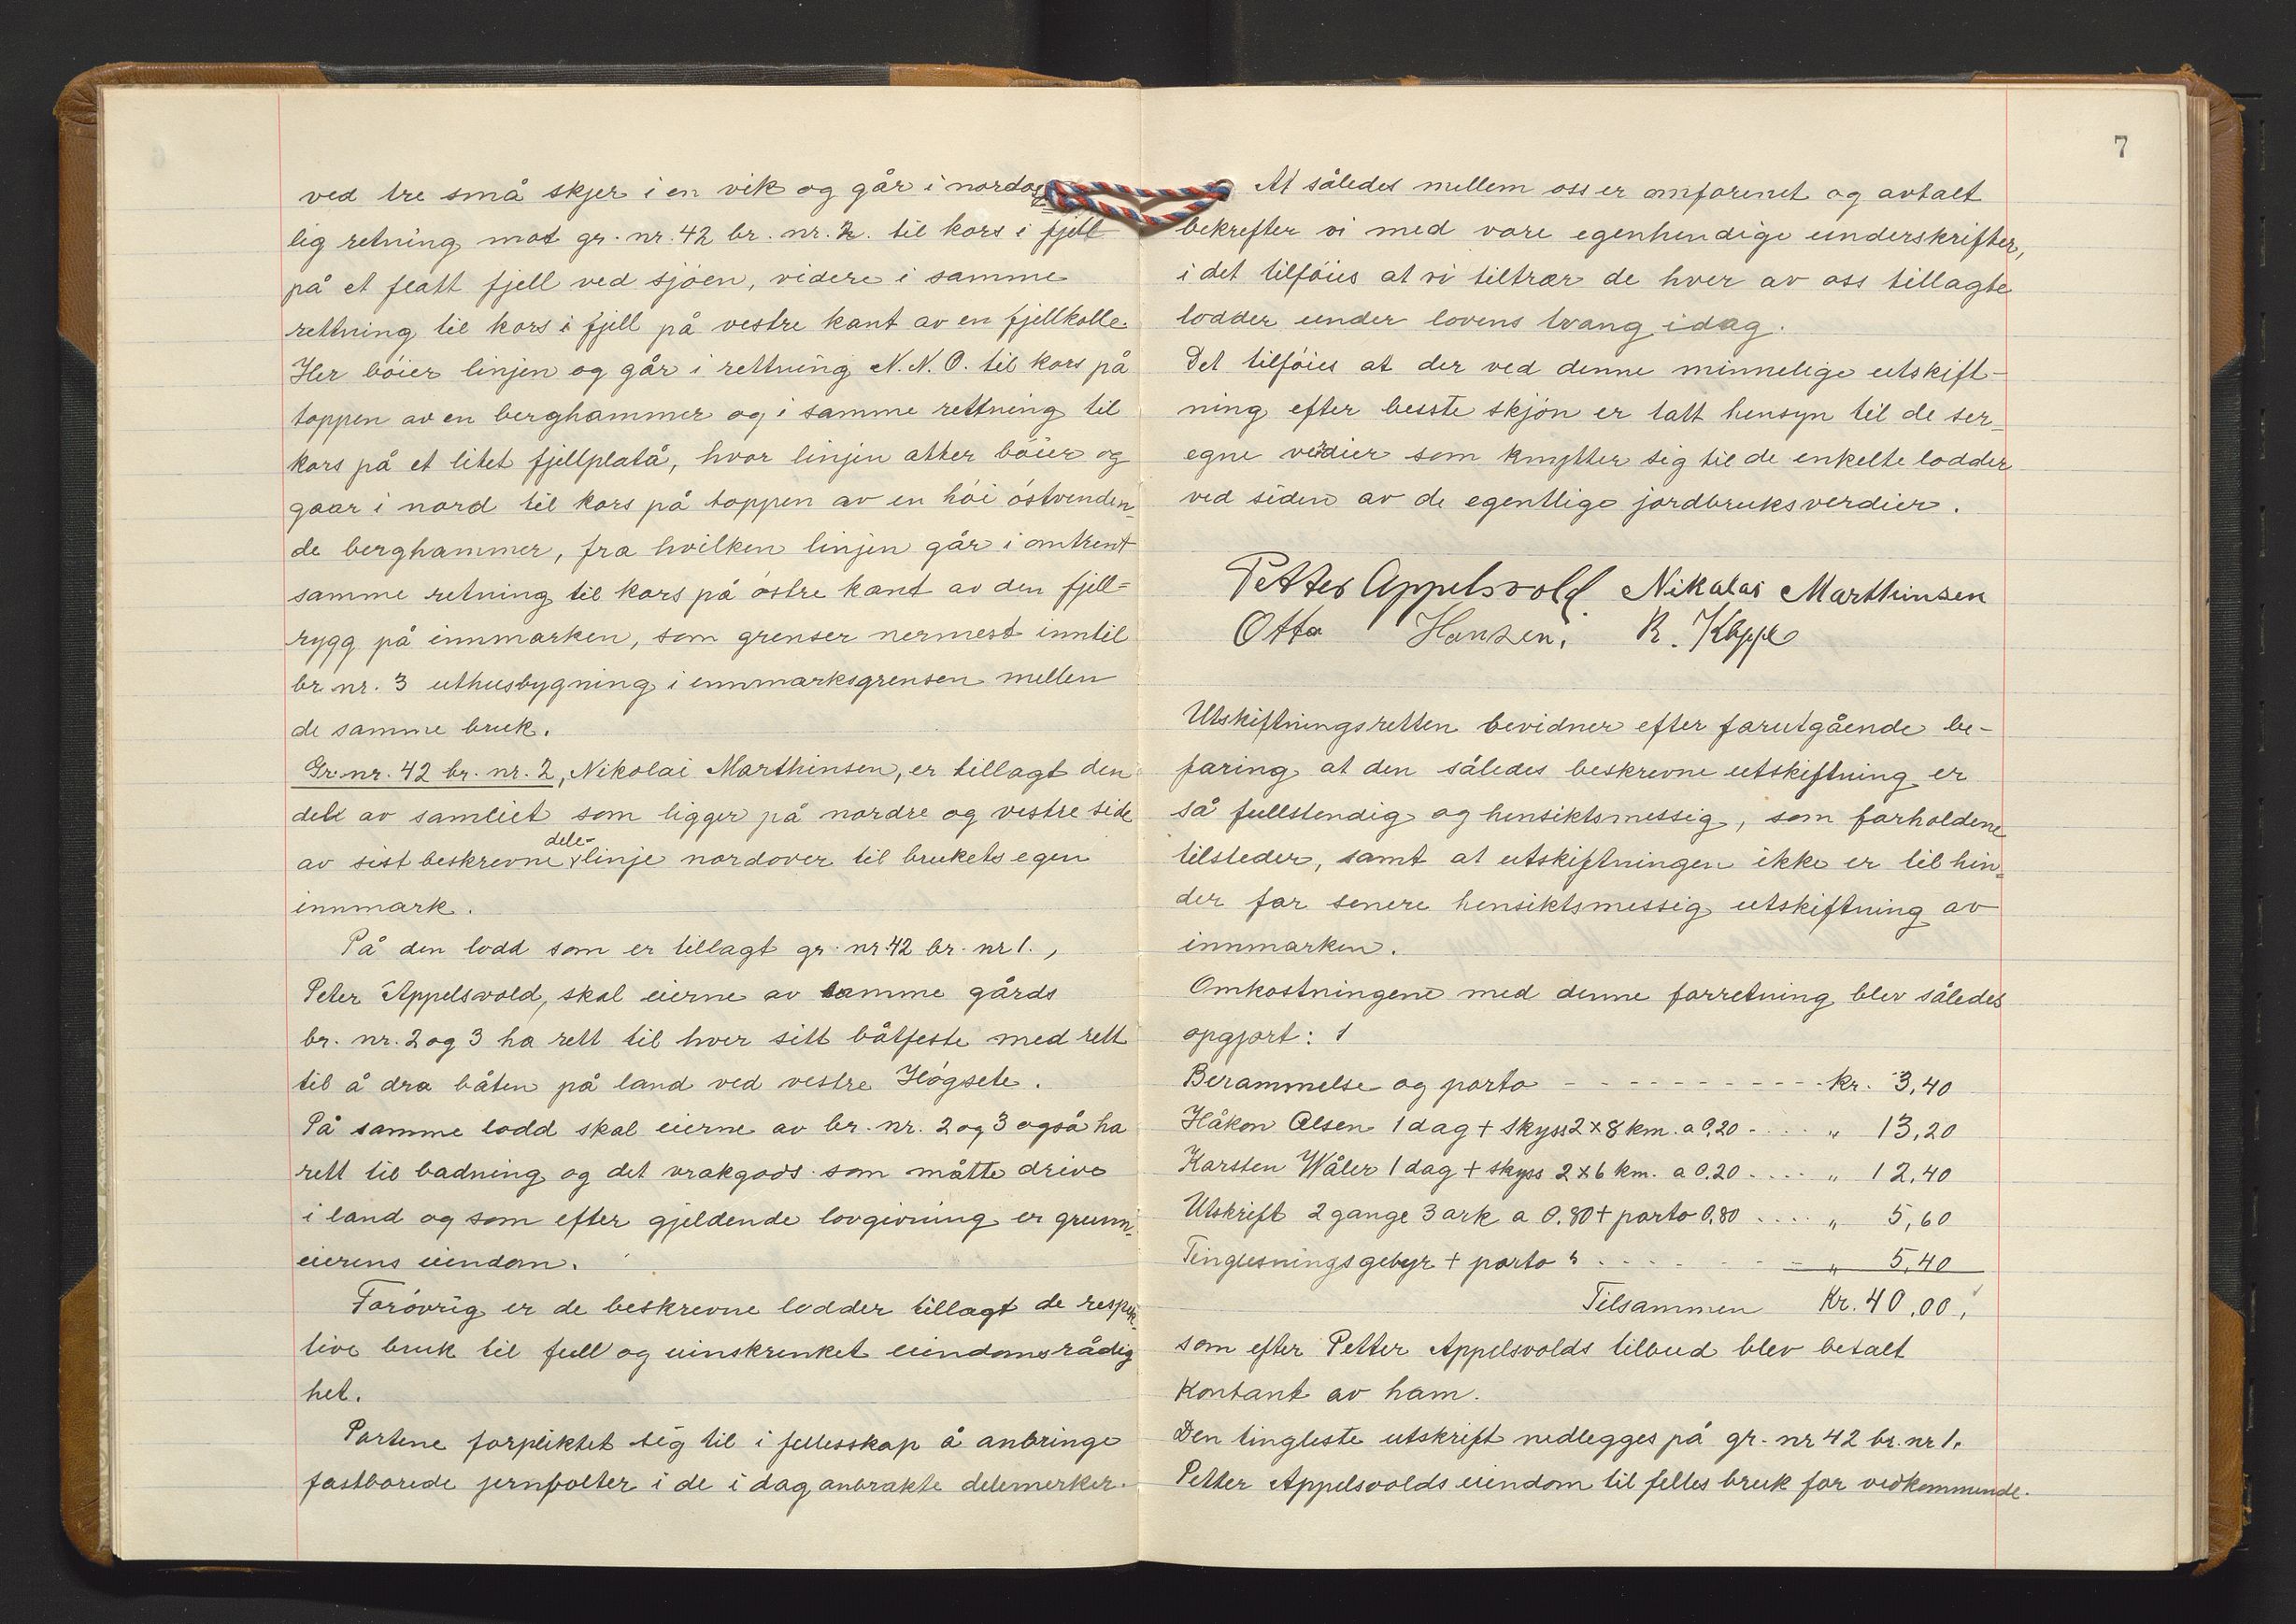 ved tre små skjer i en vik og går i nordost
lig retning mot gr. nr. 42 br. nr. 2. til kors i fjell
på et flatt fjell ved sjöen, videre i samme
rettning til kors i fjell på vestre kant av en fjellkolle.
Her böier linjen og går i rettning N.N.O. til kors på
toppen av en berghammer og i samme rettning til
kors på et litet fjellplatå, hvor linjen atter böier og
gaar i nord til kors på toppen av en höi östvenden-
de berghammer, fra hvilken linjen går i omtrent
samme retning til kors på östre kant av den fjell=
rygg på innmarken, som grenser nermest inntil
br nr. 3 uthusbygning i innmarksgrensen mellen
de samme bruk.
Gr. nr. 42 br. nr. 2, Nikolai Marthinsen, er tillagt den
del av samliet som ligger på nordre og vestre side
av sist beskrevne dele-linje nordover til brukets egen
innmark.
På den lodd som er tillagt gr. nr. 42 br. nr 1.,
Peter Appelsvold, skal eierne av samme gårds
br. nr. 2 og 3 ha rett til hver sitt båtfeste med rett
til å dra båten på land ved vestre Högsete.
På samme lodd skal eierne av br. nr. 2 og 3 også ha
rett til badning og det vrakgods som måtte drive
i land og som efter gjeldende lovgivning er grunn-
eierens eiendom.
Forövrig er de beskrevne lodder tillagt de respek-
tive bruk til full og uinskrenket eiendomsrådig
het.
Partene forpliktet sig til i fellesskap å anbringe
fastborede jernbolter i de i dag anbrakte delemerker.
7
At således mellem oss er omforenet og avtalt
bekrefter vi med vore egenhendige underskrifter,
i det tilföies at vi tiltrær de hver av oss tillagte
lodder under lovens tvang idag.
Det tilföies at der ved denne minnelige utskift-
ning efter besste skjön er tatt hensyn til de ser-
egne verdier som knytter sig til de enkelte lodder
ved siden av de egentlige jordbruksverdier.
Petter Appelsvold Nikolai Marthinsen
Otto Hansen. R. Keppe
Utskiftningsretten bevidner efter forutgående be-
faring at den således beskrevne utskiftning er
så fullstendig og hensiktsmessig, som forholdene
tilsteder, samt at utskiftningen ikke er til hin-
der for senere hensiktsmessig utskiftning av
innmarken.
Omkostningene med denne forretning blev således
opgjort:
Berammelse og porto - - - - - - - - - - - kr. 3,40
Håkon Olsen 1 dag + skyss 2 x 8 km. a 0,20 - . . . . „ 13,20
Karsten Wåler 1 dag + skyss 2 x 6 km. a 0,20 - . . . „ 12,40
Utskrift 2 gange 3 ark a 0.80 + porto 0,80 . . . . „ 5,60
Tinglesningsgebyr + porto . . . . . . - „ 5,40
Tilsammen Kr. 40,00,
som efter Petter Appelsvolds tilbud blev betalt
kontant av ham.
Den tingleste utskrift nedlegges på gr. nr 42 br. nr 1.
Petter Appelsvolds eiendom til felles bruk for vedkommende.